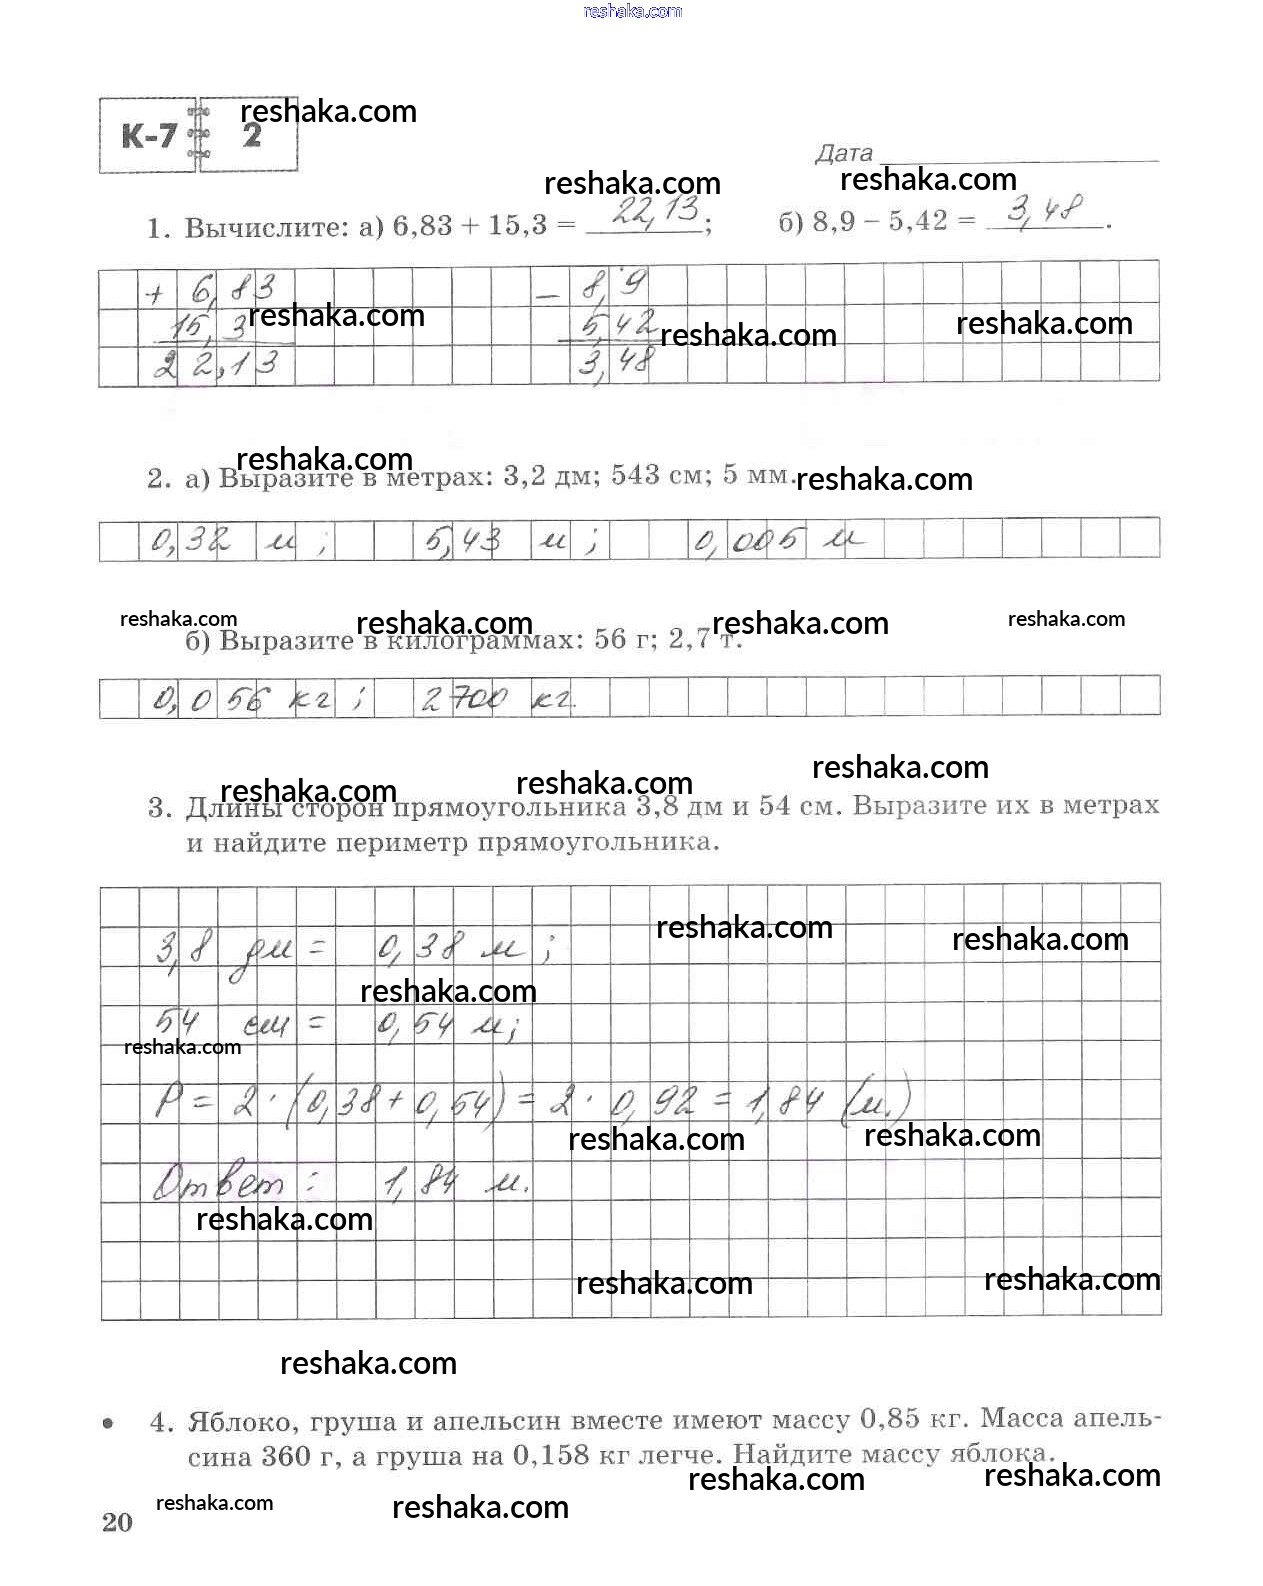 reshaka.com
К-7 2 reshaka.com
Дата
reshaka.com reshaka.com
1. Вычислите: а) 6,83 + 15,3 = 22,13; б) 8,9 – 5,42 = 3,48.
+ 6,83 – 8,9
15,3 reshaka.com 5,42 reshaka.com reshaka.com
22,13 3,48
reshaka.com
2. а) Выразите в метрах: 3,2 дм; 543 см; 5 мм. reshaka.com
0,32 м; 5,43 м; 0,005 м
reshaka.com reshaka.com reshaka.com reshaka.com
б) Выразите в килограммах: 56 г; 2,7 т.
0,056 кг; 2700 кг.
reshaka.com reshaka.com reshaka.com
3. Длины сторон прямоугольника 3,8 дм и 54 см. Выразите их в метрах
и найдите периметр прямоугольника.
reshaka.com reshaka.com
3,8 дм = 0,38 м;
reshaka.com
54 см = 0,54 м;
reshaka.com
P = 2 · (0,38 + 0,54) = 2 · 0,92 = 1,84 (м.)
reshaka.com reshaka.com
Ответ: 1,84 м.
reshaka.com
reshaka.com reshaka.com
reshaka.com
• 4. Яблоко, груша и апельсин вместе имеют массу 0,85 кг. Масса апель-
сина 360 г, а груша на 0,158 кг легче. Найдите массу яблока.
reshaka.com reshaka.com
reshaka.com reshaka.com
20